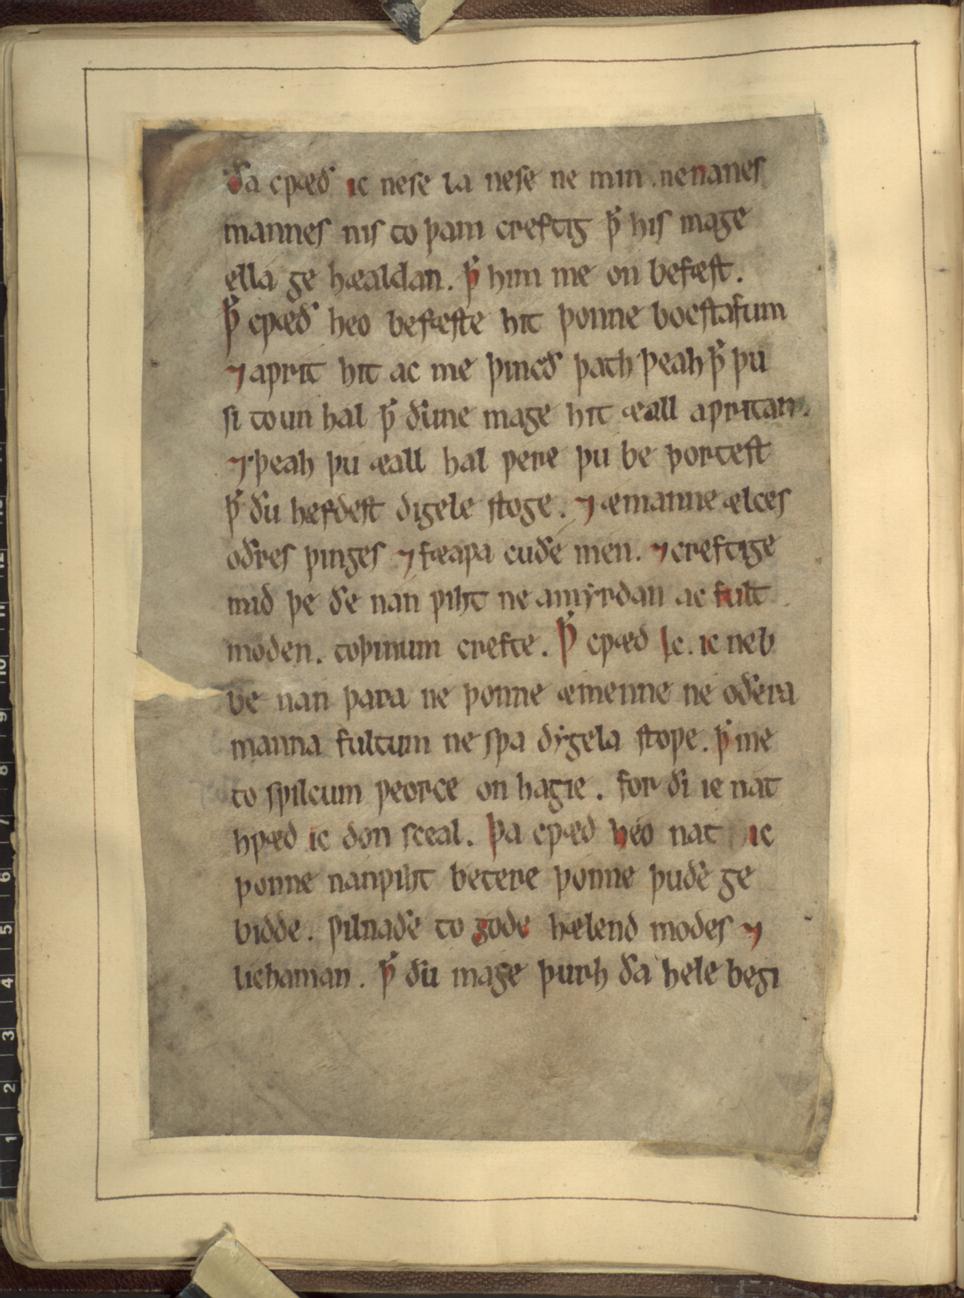 ða cƿæð ic nese la nese ne min. ne nanes
mannes nis to þam creftig þ̄ his mage
ealla ge hæaldan. þ̄ him me on befæst.
þ̄ cƿæð heo befæste hit þonne bocstafum
⁊ aƿrit hit ac me þincð þath þeah þ̄ þu
si to un hal þ̄ ðune mage hit æall aƿritan.
⁊ þeah þu æall hal ƿere þu be þorftest
þ̄ ðu hefdest digele stoge. ⁊ æmanne ælces
oðres þinges ⁊ fæaƿa cuðe men. ⁊ creftige
mid þe ðe nan ƿiht ne amyrdan ac fult
moden. to þinum crefte. Þ̄ cƿæd Ic. ic neb
be nan þara ne þonne æmenne ne oðera
manna fultum ne sƿa dygela stoƿe. þ̄ me
to sƿilcum ƿeorce on hagie. for ði ic nat
hƿæd ic don sceal. Þa cƿæd heo nat ic
þonne nanƿiht betere þonne þu ðe ge
bidde. ƿilnaðe to gode hælend modes ⁊
lichaman. þ̄ ðu mage þurh ða hele begi